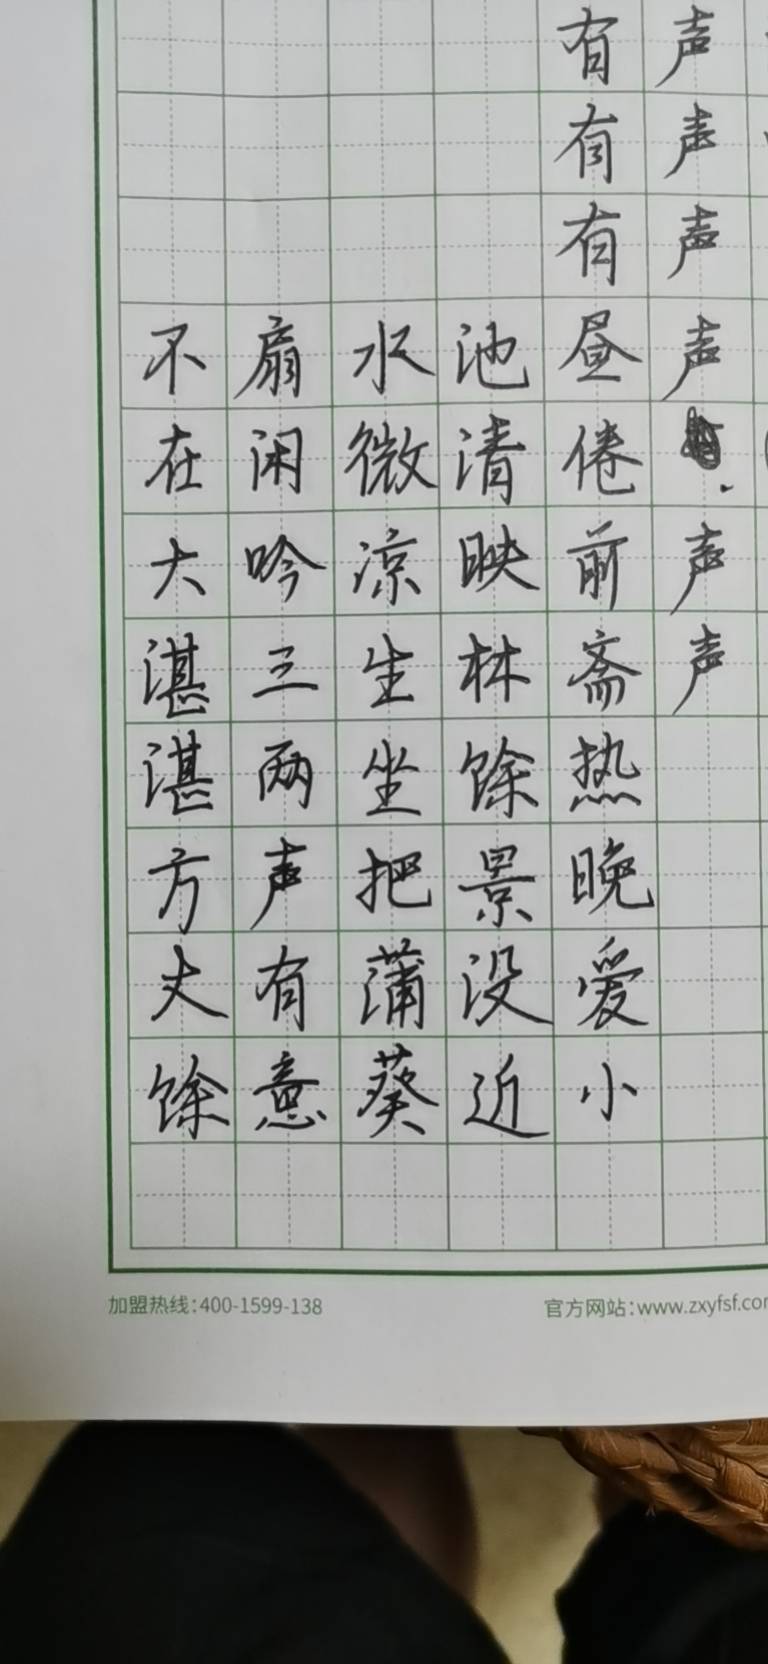 声声声声声声
有有有昼倦前斋热晚爱小
池清映林馀景没近
水微凉生坐把蒲葵
扇闲吟三两声有意
不在大湛湛方丈馀
加盟热线：400-1599-138
官方网站：www.zxyfsf.co